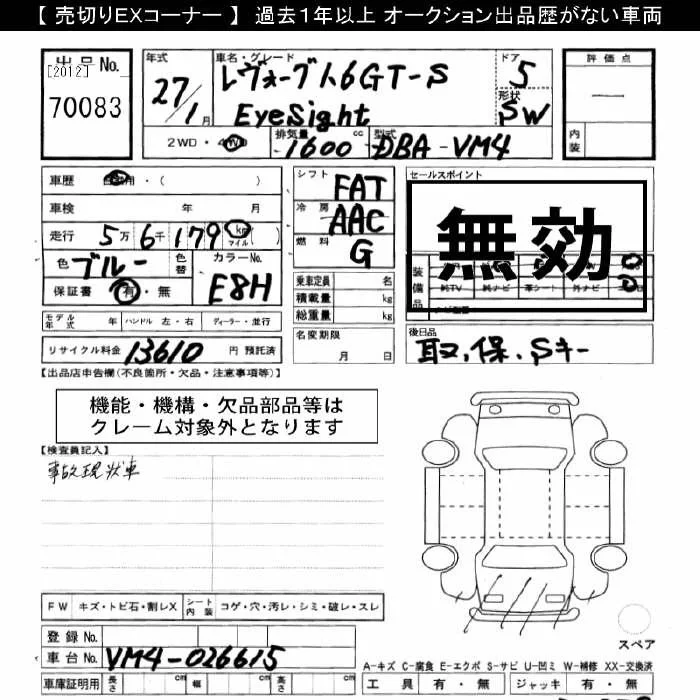 【 売切りEXコーナー 】 過去１年以上 オークション出品歴がない車両
出品No.
[2012]
70083
年式
27/1月
車名・グレード
レヴォーグ1.6GT-S
EyeSight
ドア
5
形状
SW
評価点
一
内装
2WD・4WD
排気量
1600 cc
型式
DBA-VM4
車歴 自家用・( )
車検 年 月
走行 5万6千179 km マイル ( )
色 ブルー 色替 カラーNo. E8H
保証書 有・無
シフト FAT
冷房 AAC
燃料 G
乗車定員 名
積載量 kg
総重量 kg
セールスポイント
無効
装備品
純TV 純ナビ 革シート
モデル年式 年 ハンドル 左・右 ディーラー・並行
名変期限
月 日
リサイクル料金 13610 円 預託済
後日品
取.保.Sキー
【出品店申告欄(不良箇所・欠品・注意事項等)】
機能・機構・欠品部品等は
クレーム対象外となります
【検査員記入】
事故現状車
FW キズ・トビ石・割レX シート内装 コゲ・穴・汚レ・シミ・破レ・スレ
登録No.
車台No. VM4-026615
車庫証明用 長さ cm 幅 cm cm
スペア
A-キズ C-腐食 E-エクボ S-サビ U-凹ミ W-補修 XX-交換済
工具 有・無 ジャッキ 有・無